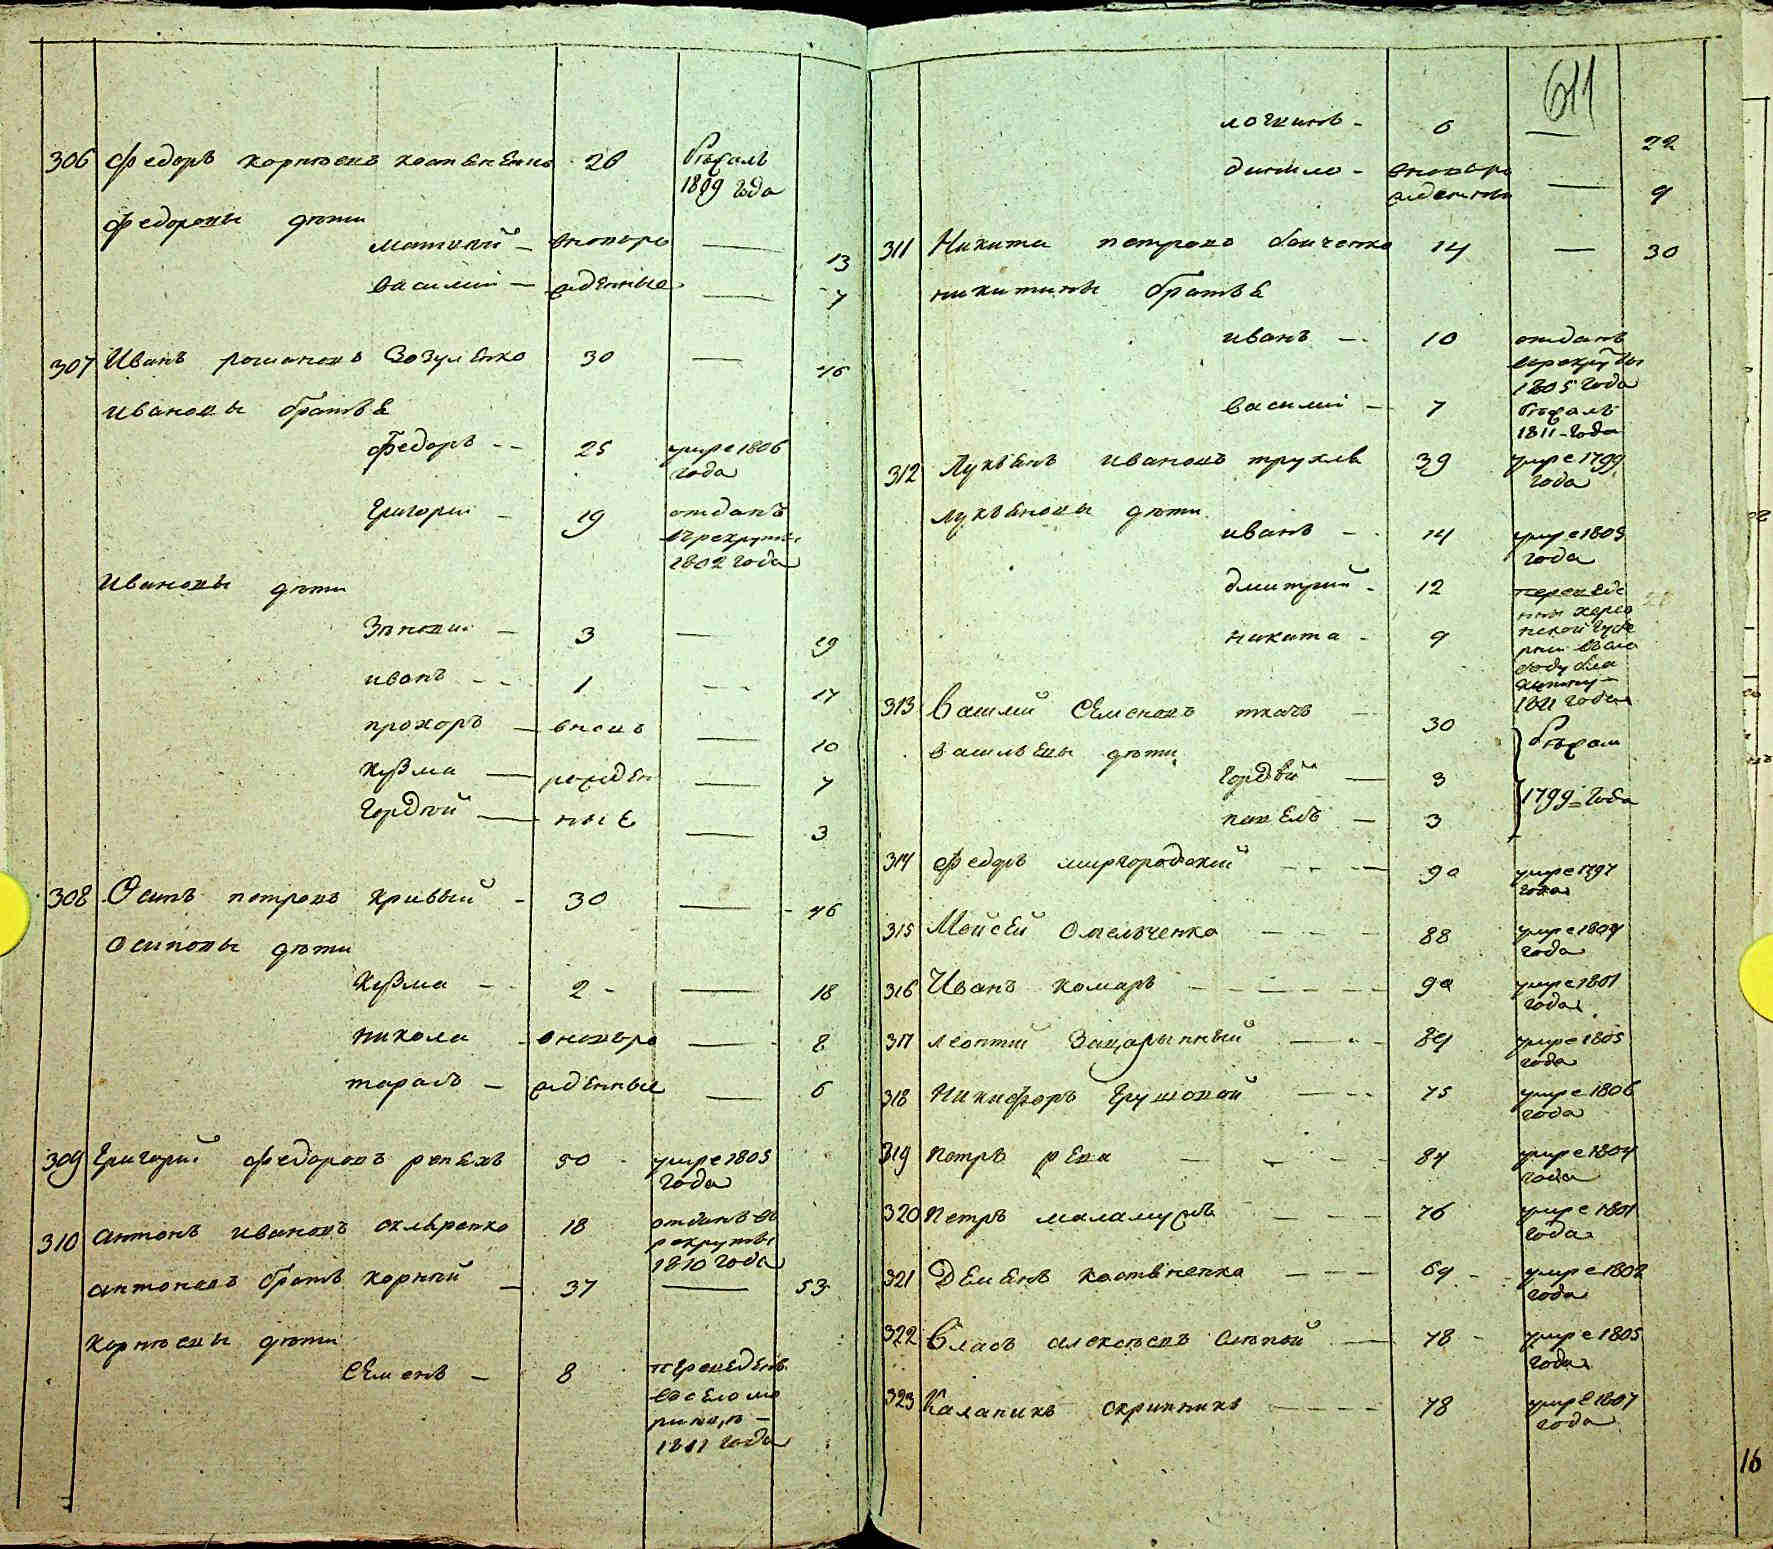 306 Федоръ корнѣевъ костенко 26 бѣжалъ
1809 года
Федоровы дѣти
матвѣй – вновъро — 13
василий – жденные — 7
307 Иванъ романовъ Зозуленко 30 — 46
Ивановы братья
Федоръ -- 25 умре 1806
года
Григорий – 19 отданъ
въ рекруты
1802 года
Ивановы дѣти
Зѣновий – 3 — 19
иванъ -- 1 -- 17
прохоръ – вновъ — 10
кузма — рожден — 7
Гордѣй — ные — 3
308 Осипъ петровъ кривый - 30 — 46
Осиповы дѣти
кузма - 2 - — 18
никола - вновъро — 8
тарасъ – жденные — 6
309 Григорий Федоровъ репехъ 50 умре 1805
года
310 антонъ ивановъ скляренко 18 отданъ въ
рекруты
1810 года
антоновъ братъ корнѣй – 37 — 53
корнѣевы дѣти
Семенъ – 8 переведенъ
въ село
1811 года
611
логвинъ - 6 — 22
данило - вновъро
жденны — 9
311 Никита петровъ бойченко 14 — 30
никитины братья
иванъ - 10 отданъ
въ рекруты
1805 года
василий – 7 бѣжалъ
1811 – года
312 Лукьянъ ивановъ 39 умре 1799
года
лукьяновы дѣти
иванъ - 14 умре 1805
года
дмитрий - 12 переведе
ны херсо
никита - 9 нской губе
рнии
1811 года
313 Василий Семеновъ ткачъ — 30
васильевы дѣти бѣжали
Гордѣй — 3
1799 = года
павелъ — 3
314 Федоръ миргородский --- 90 умре 1797
года
315 Мойсей омельченко --- 88 умре 1804
года
316 Иванъ комаръ --- 90 умре 1801
года
317 леонтий Зацарынный --- 84 умре 1805
года
318 Никифоръ Грушовой --- 75 умре 1806
года
319 Петръ рева --- 84 умре 1804
года
320 Петръ маламужъ --- 76 умре 1801
года
321 Деменъ костѣненко --- 69 умре 1802
года
322 Власъ алексѣевъ слѣпой — 78 умре 1805
года
323 Каленикъ скрипникъ --- 78 умре 1807
года
16